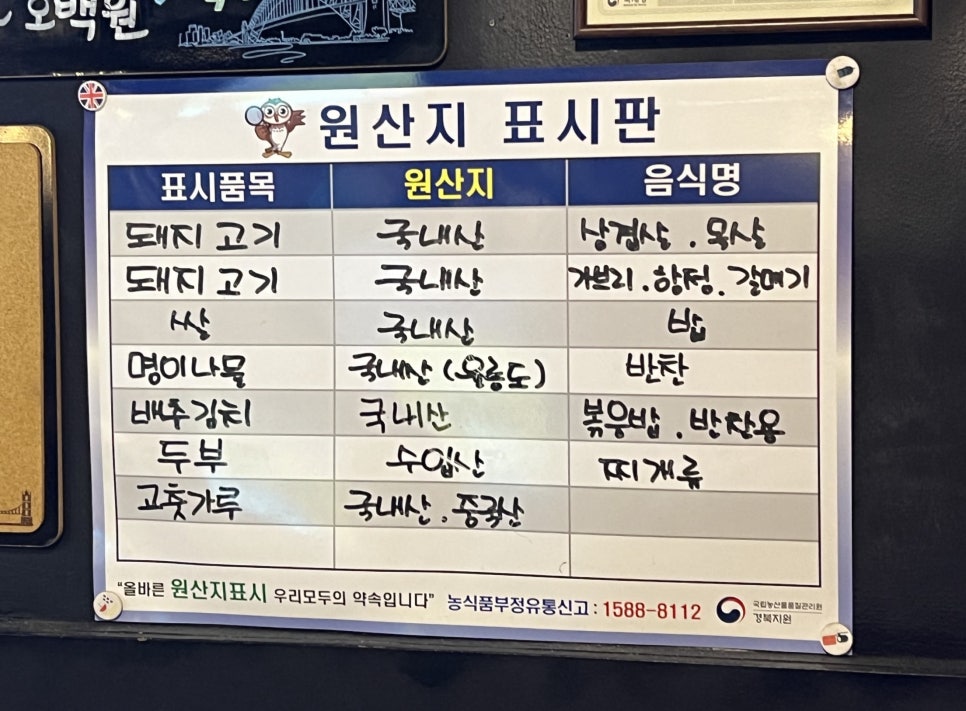 오백원
원산지 표시판
표시품목 원산지 음식명
돼지고기 국내산 삼겹살 . 목살
돼지고기 국내산 가브리 . 항정 . 갈매기
쌀 국내산 밥
명이나물 국내산 (울릉도) 반찬
배추김치 국내산 볶음밥 . 반찬용
두부 수입산 찌개류
고춧가루 국내산 . 중국산
"올바른 원산지표시 우리모두의 약속입니다" 농식품부정유통신고 : 1588-8112
국립농산물품질관리원
경북지원